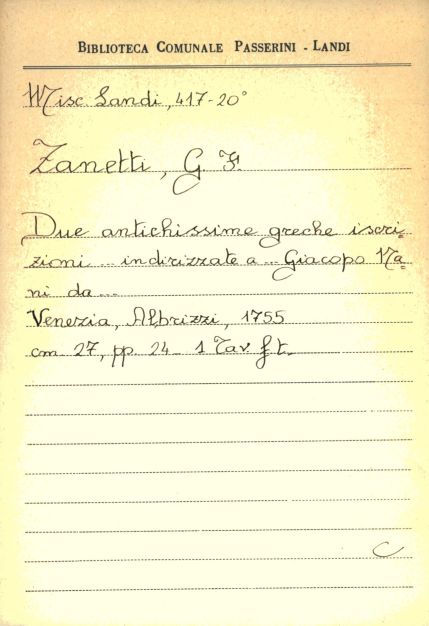 BIBLIOTECA COMUNALE PASSERINI - LANDI
Misc. Landi, 417-20°
Zanetti, G. F.
Due antichissime greche iscri=
zioni ... indirizzate a ... Giacopo Na=
ni da ...
Venezia, Albrizzi, 1755
cm. 27, pp. 24 - 1 Tav. f. t.
C